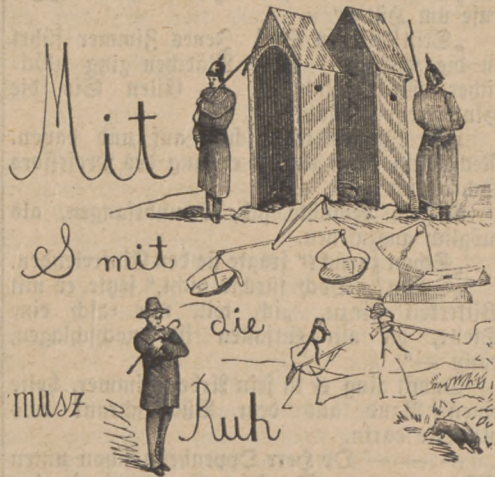 Mit
S mit
die
musz Ruh